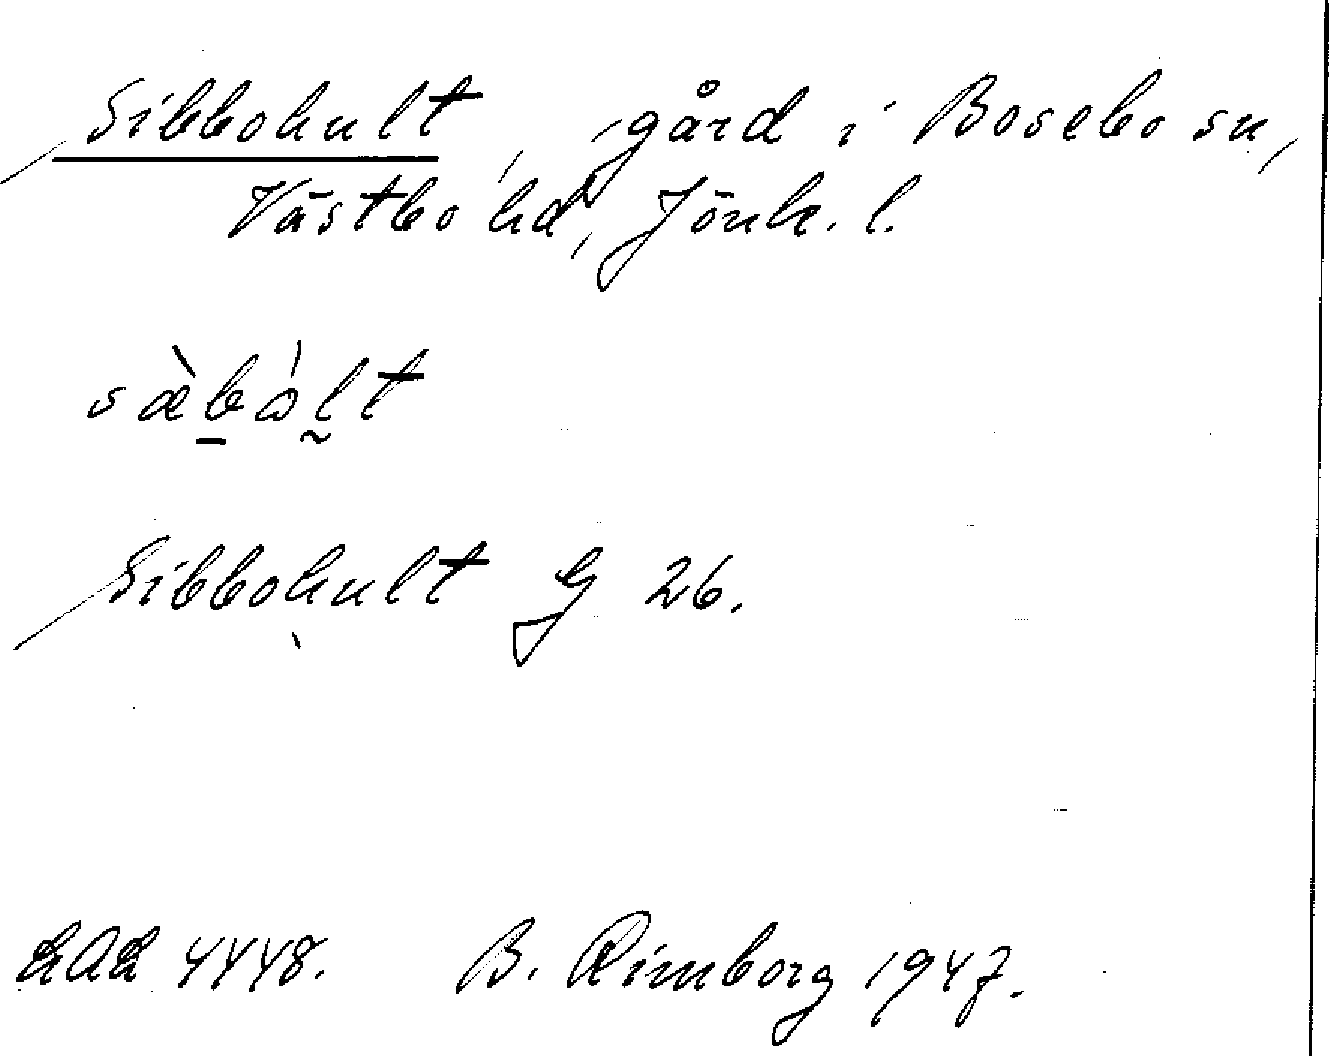 Sibbohult, gård i Bosebo sn,
Västbo hd, Jönk. l.
sæ̀b̲ól̰t
Sibbohult G 26.
LAL 4448. B. Rimborg 1947.